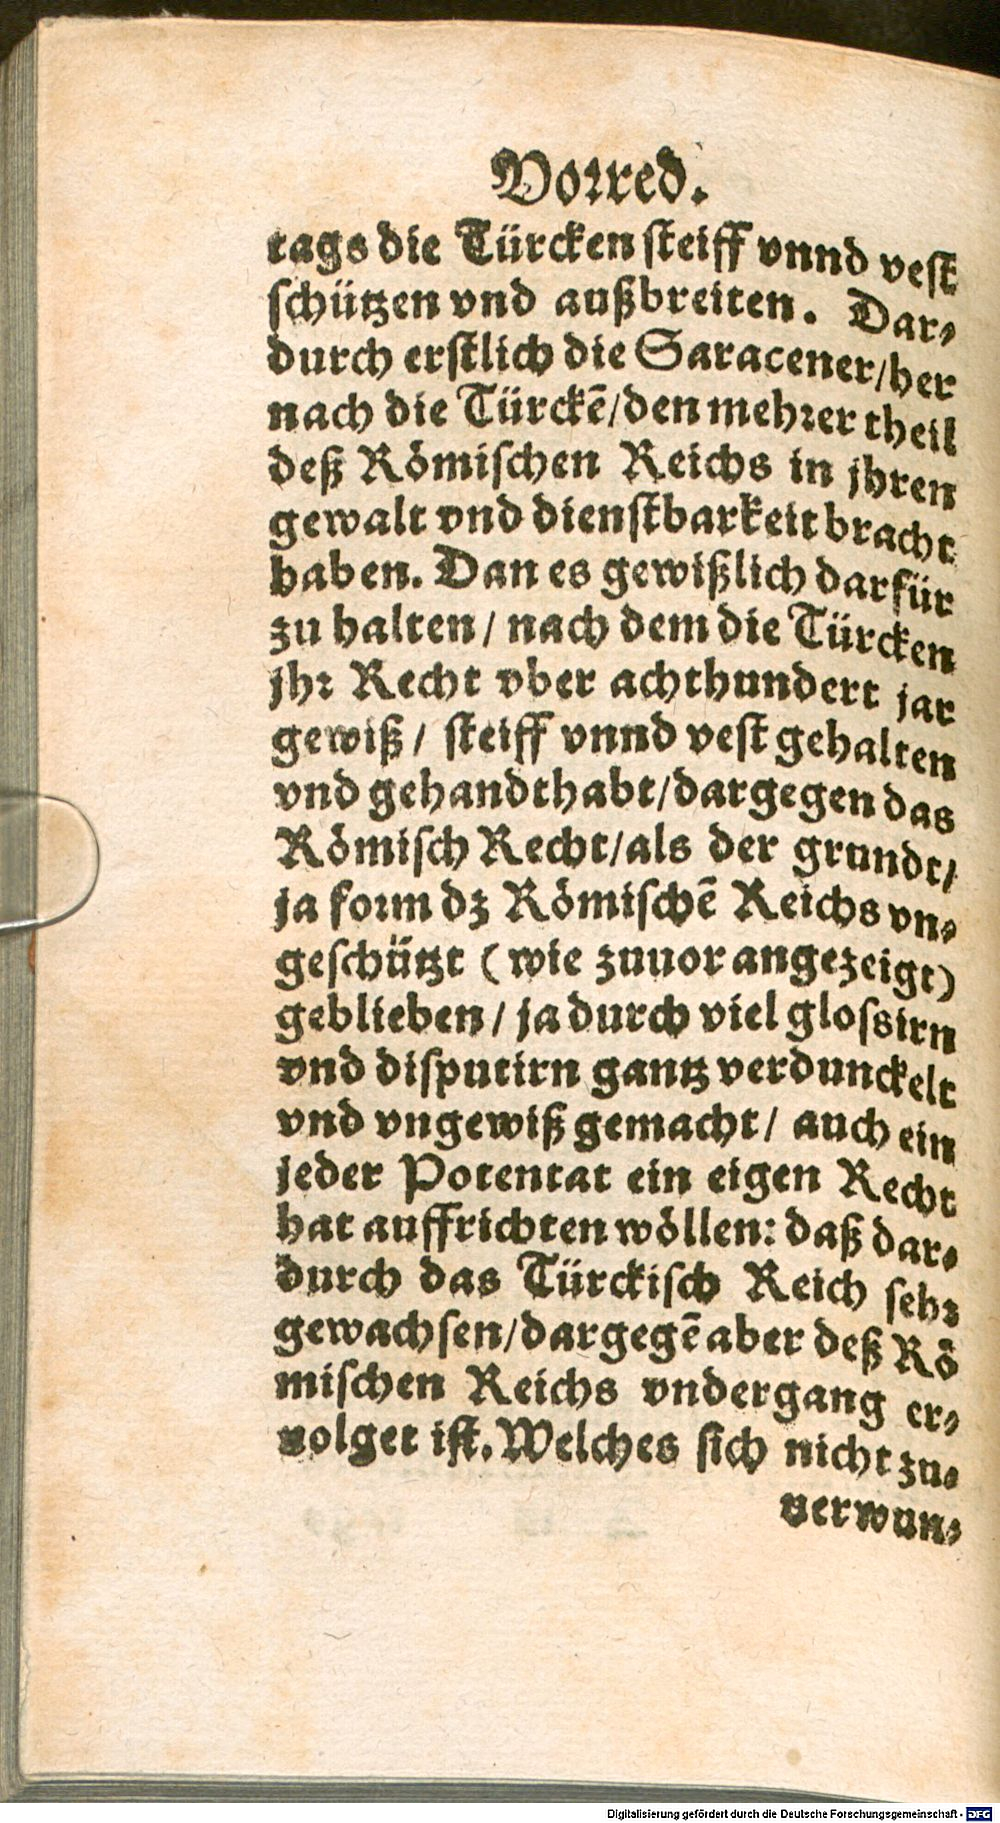 Vorred.
tags die Türcken steiff vnnd vest
schützen vnd außbreiten. Dar⸗
durch erstlich die Saracener/her
nach die Türckē/den mehrer theil
deß Römischen Reichs in jhren
gewalt vnd dienstbarkeit bracht
haben. Dan es gewißlich darfür
zu halten / nach dem die Türcken
jhr Recht vber achthundert jar
gewiß / steiff vnnd vest gehalten
vnd gehandthabt/dargegen das
Römisch Recht/als der grundt/
ja form dz Römischē Reichs vn⸗
geschützt (wie zuuor angezeigt)
geblieben / ja durch viel glossirn
vnd disputirn gantz verdunckelt
vnd vngewiß gemacht / auch ein
jeder Potentat ein eigen Recht
hat auffrichten wöllen: daß dar⸗
durch das Türckisch Reich sehr
gewachsen/dargegē aber deß Rö
mischen Reichs vndergang er⸗
volget ist. Welches sich nicht zu⸗
uerwun⸗
Digitalisierung gefördert durch die Deutsche Forschungsgemeinschaft - DFG